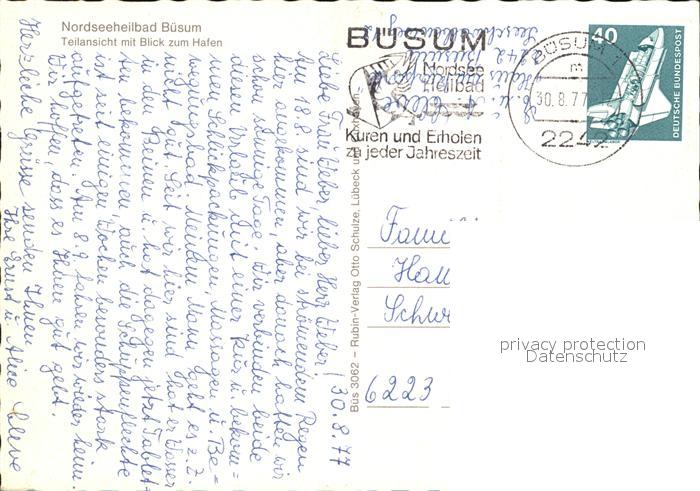 Nordseeheilbad Büsum
Teilansicht mit Blick zum Hafen
30.8.77
Liebe Frau Weber, lieber Herr Weber!
Am 18.8. sind wir bei strömendem Regen
hier angekommen, aber danach hatten wir
schon sonnige Tage. Wir verbinden beide
den Urlaub mit einer Kur u. bekom=
men Schlickpackungen, Massagen u. Be=
wegungsbad. Meinem Mann geht es z. Z.
nicht gut. Seit wir hier sind, hat er Wasser
in den Beinen u. hat dagegen jetzt Tablet=
ten bekommen, auch die Schuppenflechte
ist seit einigen Wochen besonders stark
aufgetreten. Am 8.9. fahren wir wieder heim.
Wir hoffen, dass es Ihnen gut geht.
Herzliche Grüsse senden Ihnen
Ihre Ernst u. Cleve
Büs 3062 – Rubin-Verlag Otto Schulze, Lübeck u
BÜSUM
Nordsee
Heilbad
Kuren und Erholen
zu jeder Jahreszeit
BÜSUM 1
m
30.8.77
2242
40
DEUTSCHE BUNDESPOST
2242 Büsum
Fami
Hau
Schwr
6223
privacy protection
Datenschutz